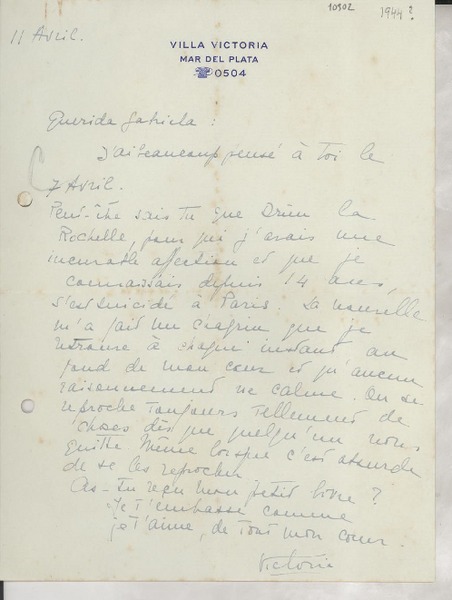 10302
1944?
11 Avril.
VILLA VICTORIA
MAR DEL PLATA
☎ 0504
Querida Gabriela :
J'ai beaucoup pensé à toi le
7 Avril.
Peut-être sais tu que Drieu la
Rochelle, pour qui j'avais une
incurable affection et que je
connaissais depuis 14 ans,
s'est suicidé à Paris. La nouvelle
m'a fait un chagrin que je
retrouve à chaque instant au
fond de mon cœur et qu'aucun
raisonnement ne calme. On se
reproche toujours tellement de
choses dès que quelqu'un nous
quitte. Même lorsque c'est absurde
de se les reprocher.
As-tu reçu mon petit livre ?
Je t'embrasse comme
je t'aime, de tout mon cœur.
Victoria